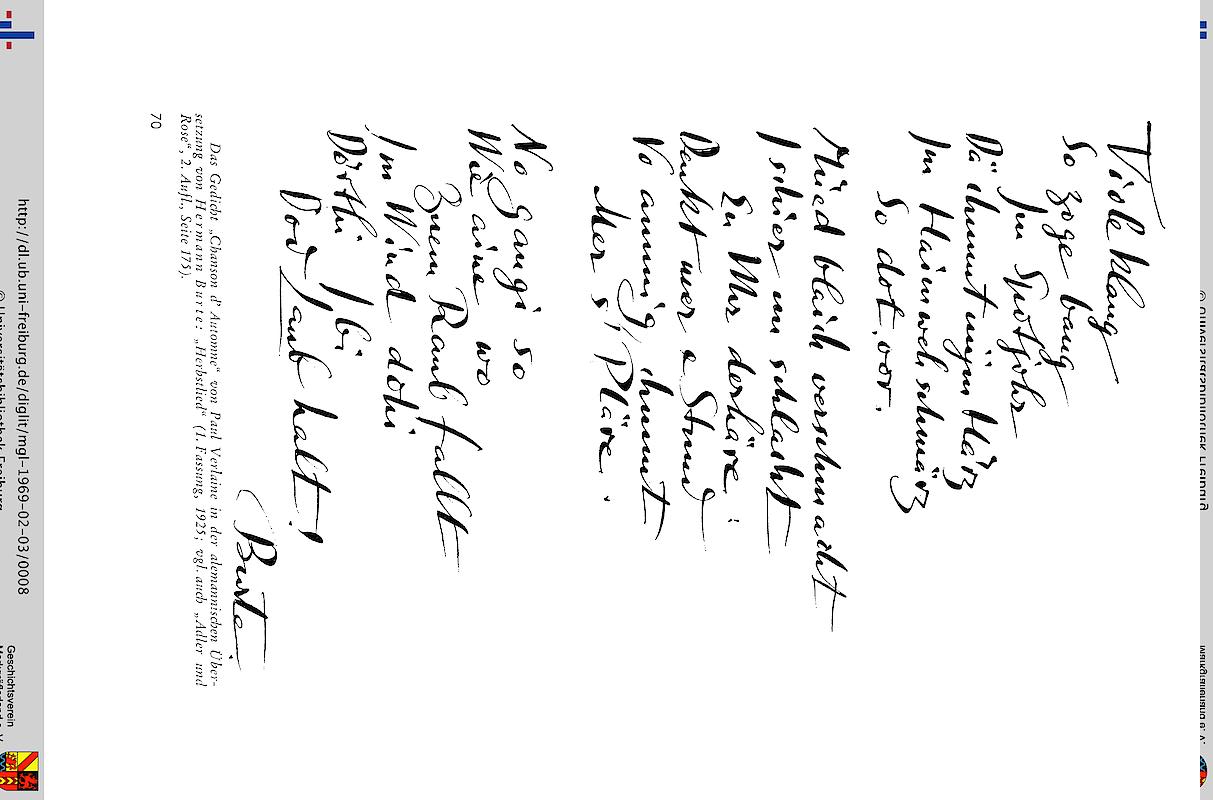 Viole klang
So zoge bang
Im Spotjohr
Dä chunnt mym Härz
Im Haimweh schmärz
So dot vor.
Mied blaich verschmacht
I schier
schlacht
En Uhr derhäre:
Dankt
e Stund
Vo ammig, chunnt
Mer s' Pläre.
No gang i so
Wie aine wo
Zuem Raub fallt
Im Wind dohi
Dörthi I bi
Laub halt!
Burte
Das Gedicht „Chanson d' Automne“ von Paul Verlaine in der alemannischen Über-
setzung von Hermann Burte: „Herbstlied“ (1. Fassung, 1925; vgl. auch „Adler und
Rose“, 2. Aufl., Seite 175).
70
http://dl.ub.uni-freiburg.de/diglit/mgl-1969-02-03/0008
© Universitätsbibliothek Freiburg
Geschichtsverein